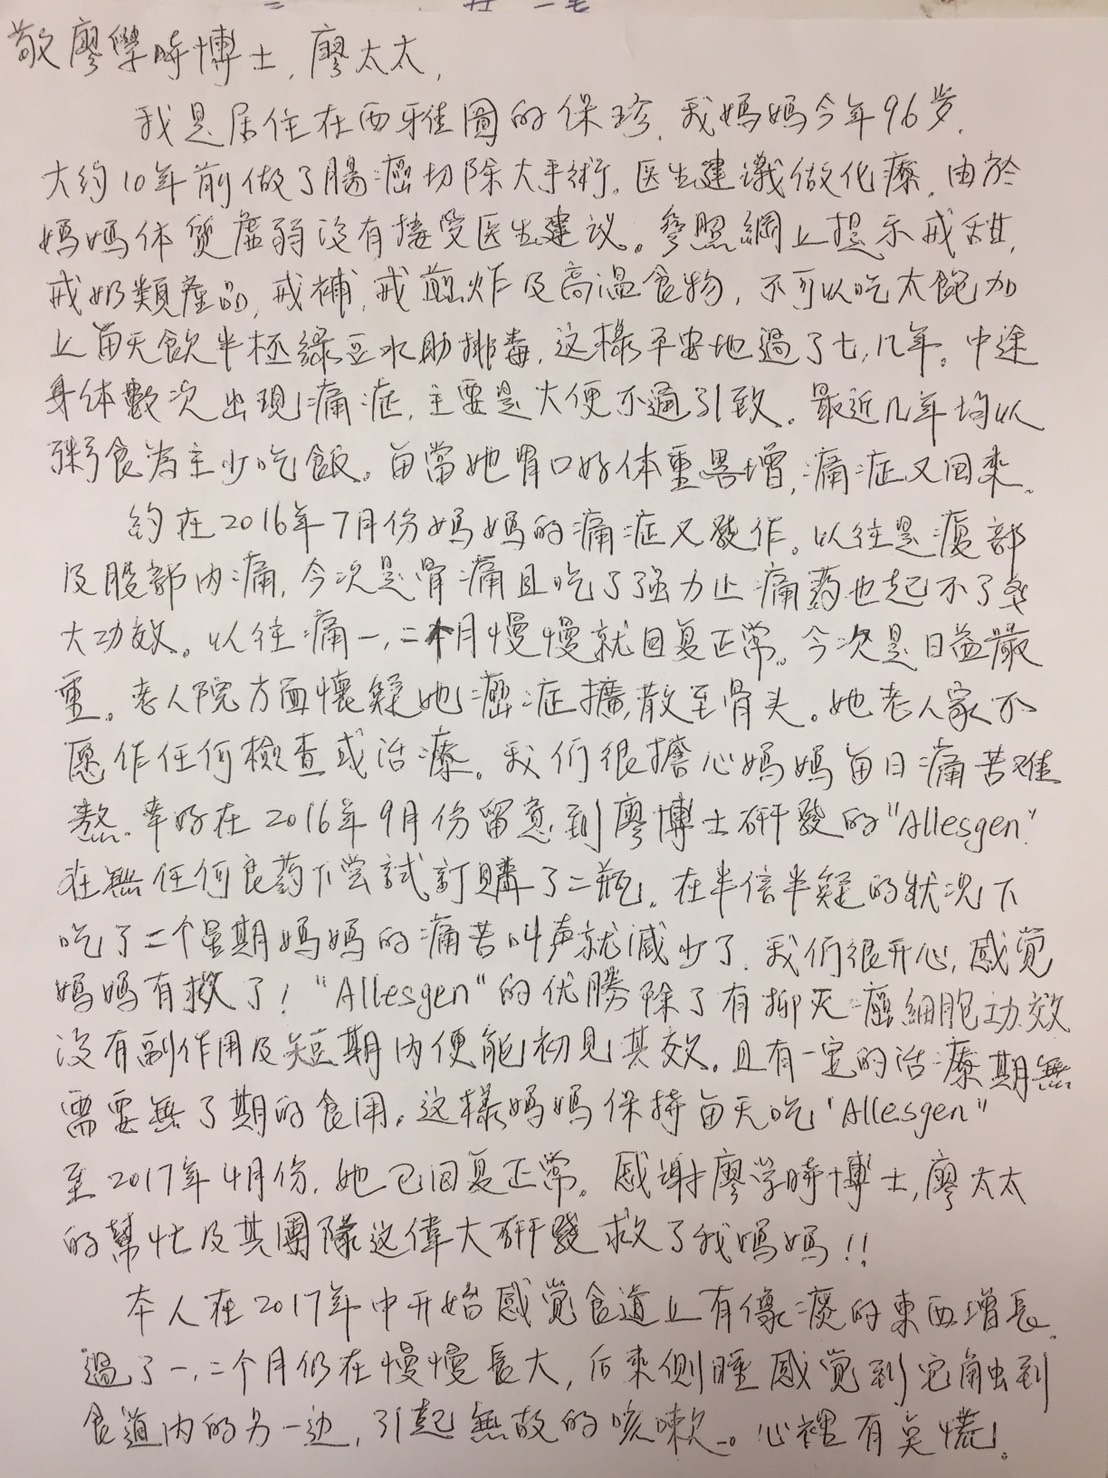 敬廖學時博士, 廖太太,
我是居住在西雅圖的保珍. 我媽媽今年96岁.
大約10年前做了腸癌切除大手術。医生建議做化療. 由於
媽媽体質虛弱沒有接受医生建议。參照網上提示戒甜,
戒奶類產品, 戒補, 戒煎炸及高温食物, 不可以吃太飽加
上每天飲半杯綠豆水助排毒. 这樣平安地過了七, 八年。中途
身体數次出現痛症, 主要是大便不通引致. 最近几年均以
粥食為主少吃飯。每當她胃口好体重畧增, 痛症又回來.
約在2016年7月份媽媽的痛症又發作。以往是腹部
及股部內痛, 今次是骨痛且吃了强力止痛葯也起不了多
大功效。以往痛一, 二个月慢慢就回复正常。今次是日益嚴
重。老人院方面懷疑她癌症擴散至骨头。她老人家不
愿作任何檢查或治療。我们很擔心媽媽每日痛苦难
熬. 幸好在2016年9月份留意到廖博士研發的"Allesgen"
在無任何良葯下尝試訂購了二瓶。在半信半疑的狀况下
吃了二个星期媽媽的痛苦叫声就减少了. 我们很开心, 感觉
媽媽有救了! "Allesgen"的优勝除了有抑灭癌細胞功效
沒有副作用及短期内便能初見其效。且有一定的治療期無
需要無了期的食用。这樣媽媽保持每天吃"Allesgen"
至2017年4月份. 她已回复正常。感谢廖学時博士, 廖太太
的幫忙及其團隊这偉大研發救了我媽媽!!
本人在2017年中开始感觉食道上有像痰的東西增長.
過了一, 二个月仍在慢慢長大, 后來側睡感觉到它触到
食道内的另一边, 引起無故的咳嗽。心裡有点慌。